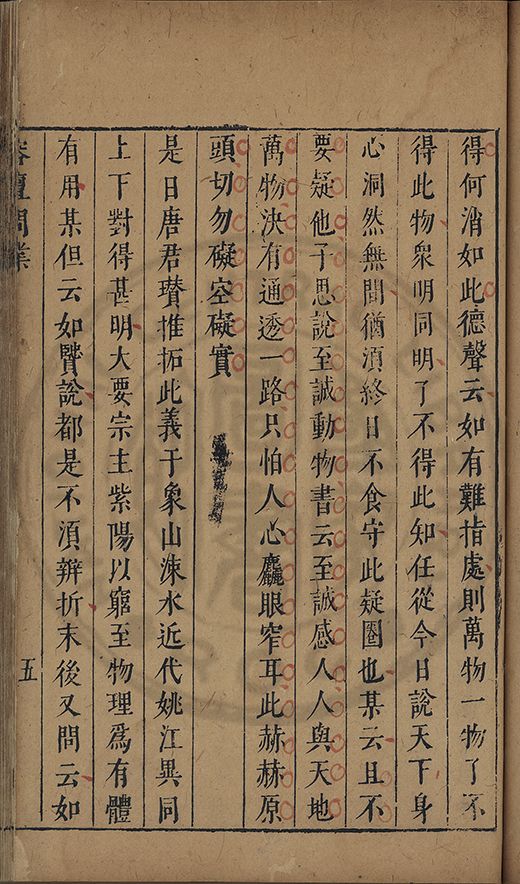 得何消如此德聲云如有難指處則萬物一物了不
得此物衆明同明了不得此知任從今日說天下身
心洞然無間猶湏終日不食守此疑圈也某云且不
要疑他子思說至誠動物書云至誠感人人與天地
萬物決有通透一路只怕人心麤眼窄耳此赫赫原
頭切勿礙空礙實
是日唐君瓚推拓此義于象山涑水近代姚江異同
上下對得甚明大要宗主紫陽以窮至物理爲有體
有用某但云如賢說都是不湏辨折末後又問云如
榕壇問業
五